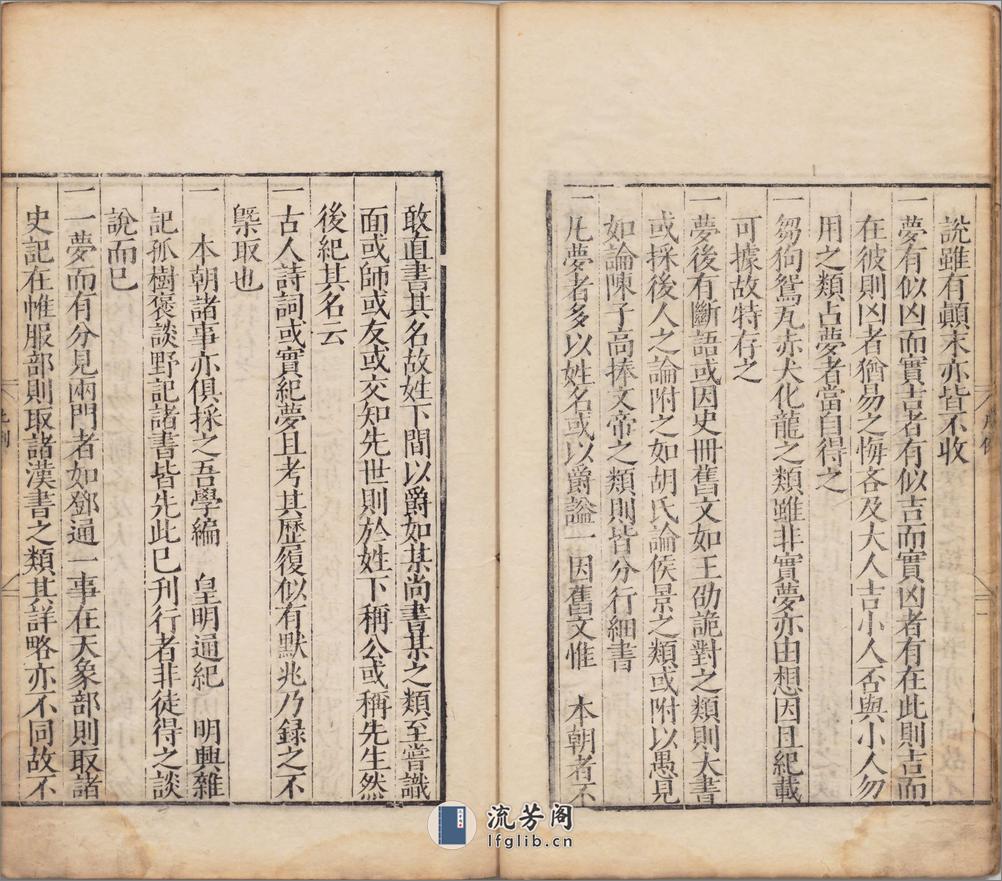 說雖有顚末亦皆不收
一夢有似凶而實吉者有似吉而實凶者有在此則吉而
在彼則凶者猶易之悔吝及大人吉小人否與小人勿
用之類占夢者當自得之
一芻狗鴛瓦赤犬化龍之類雖非實夢亦由想因且紀載
可據故特存之
一夢後有斷語或因史冊舊文如王劭詭對之類則大書
或採後人之論附之如胡氏論侯景之類或附以愚見
如論陳子高捧文帝之類則皆分行細書
一凡夢者多以姓名或以爵謚一因舊文惟 本朝者不
敢直書其名故姓下間以爵如某尚書某之類至嘗識
面或師或友或交知先世則於姓下稱公或稱先生然
後紀其名云
一古人詩詞或實紀夢且考其歷履似有默兆乃録之不
槩取也
一 本朝諸事亦俱採之吾學編 皇明通紀 明興雜
記孤樹褒談野記諸書皆先此已刊行者非徒得之談
說而已
一夢而有分見兩門者如鄧通一事在天象部則取諸
史記在帷服部則取諸漢書之類其詳略亦不同故不
流芳阁
lfglib.cn